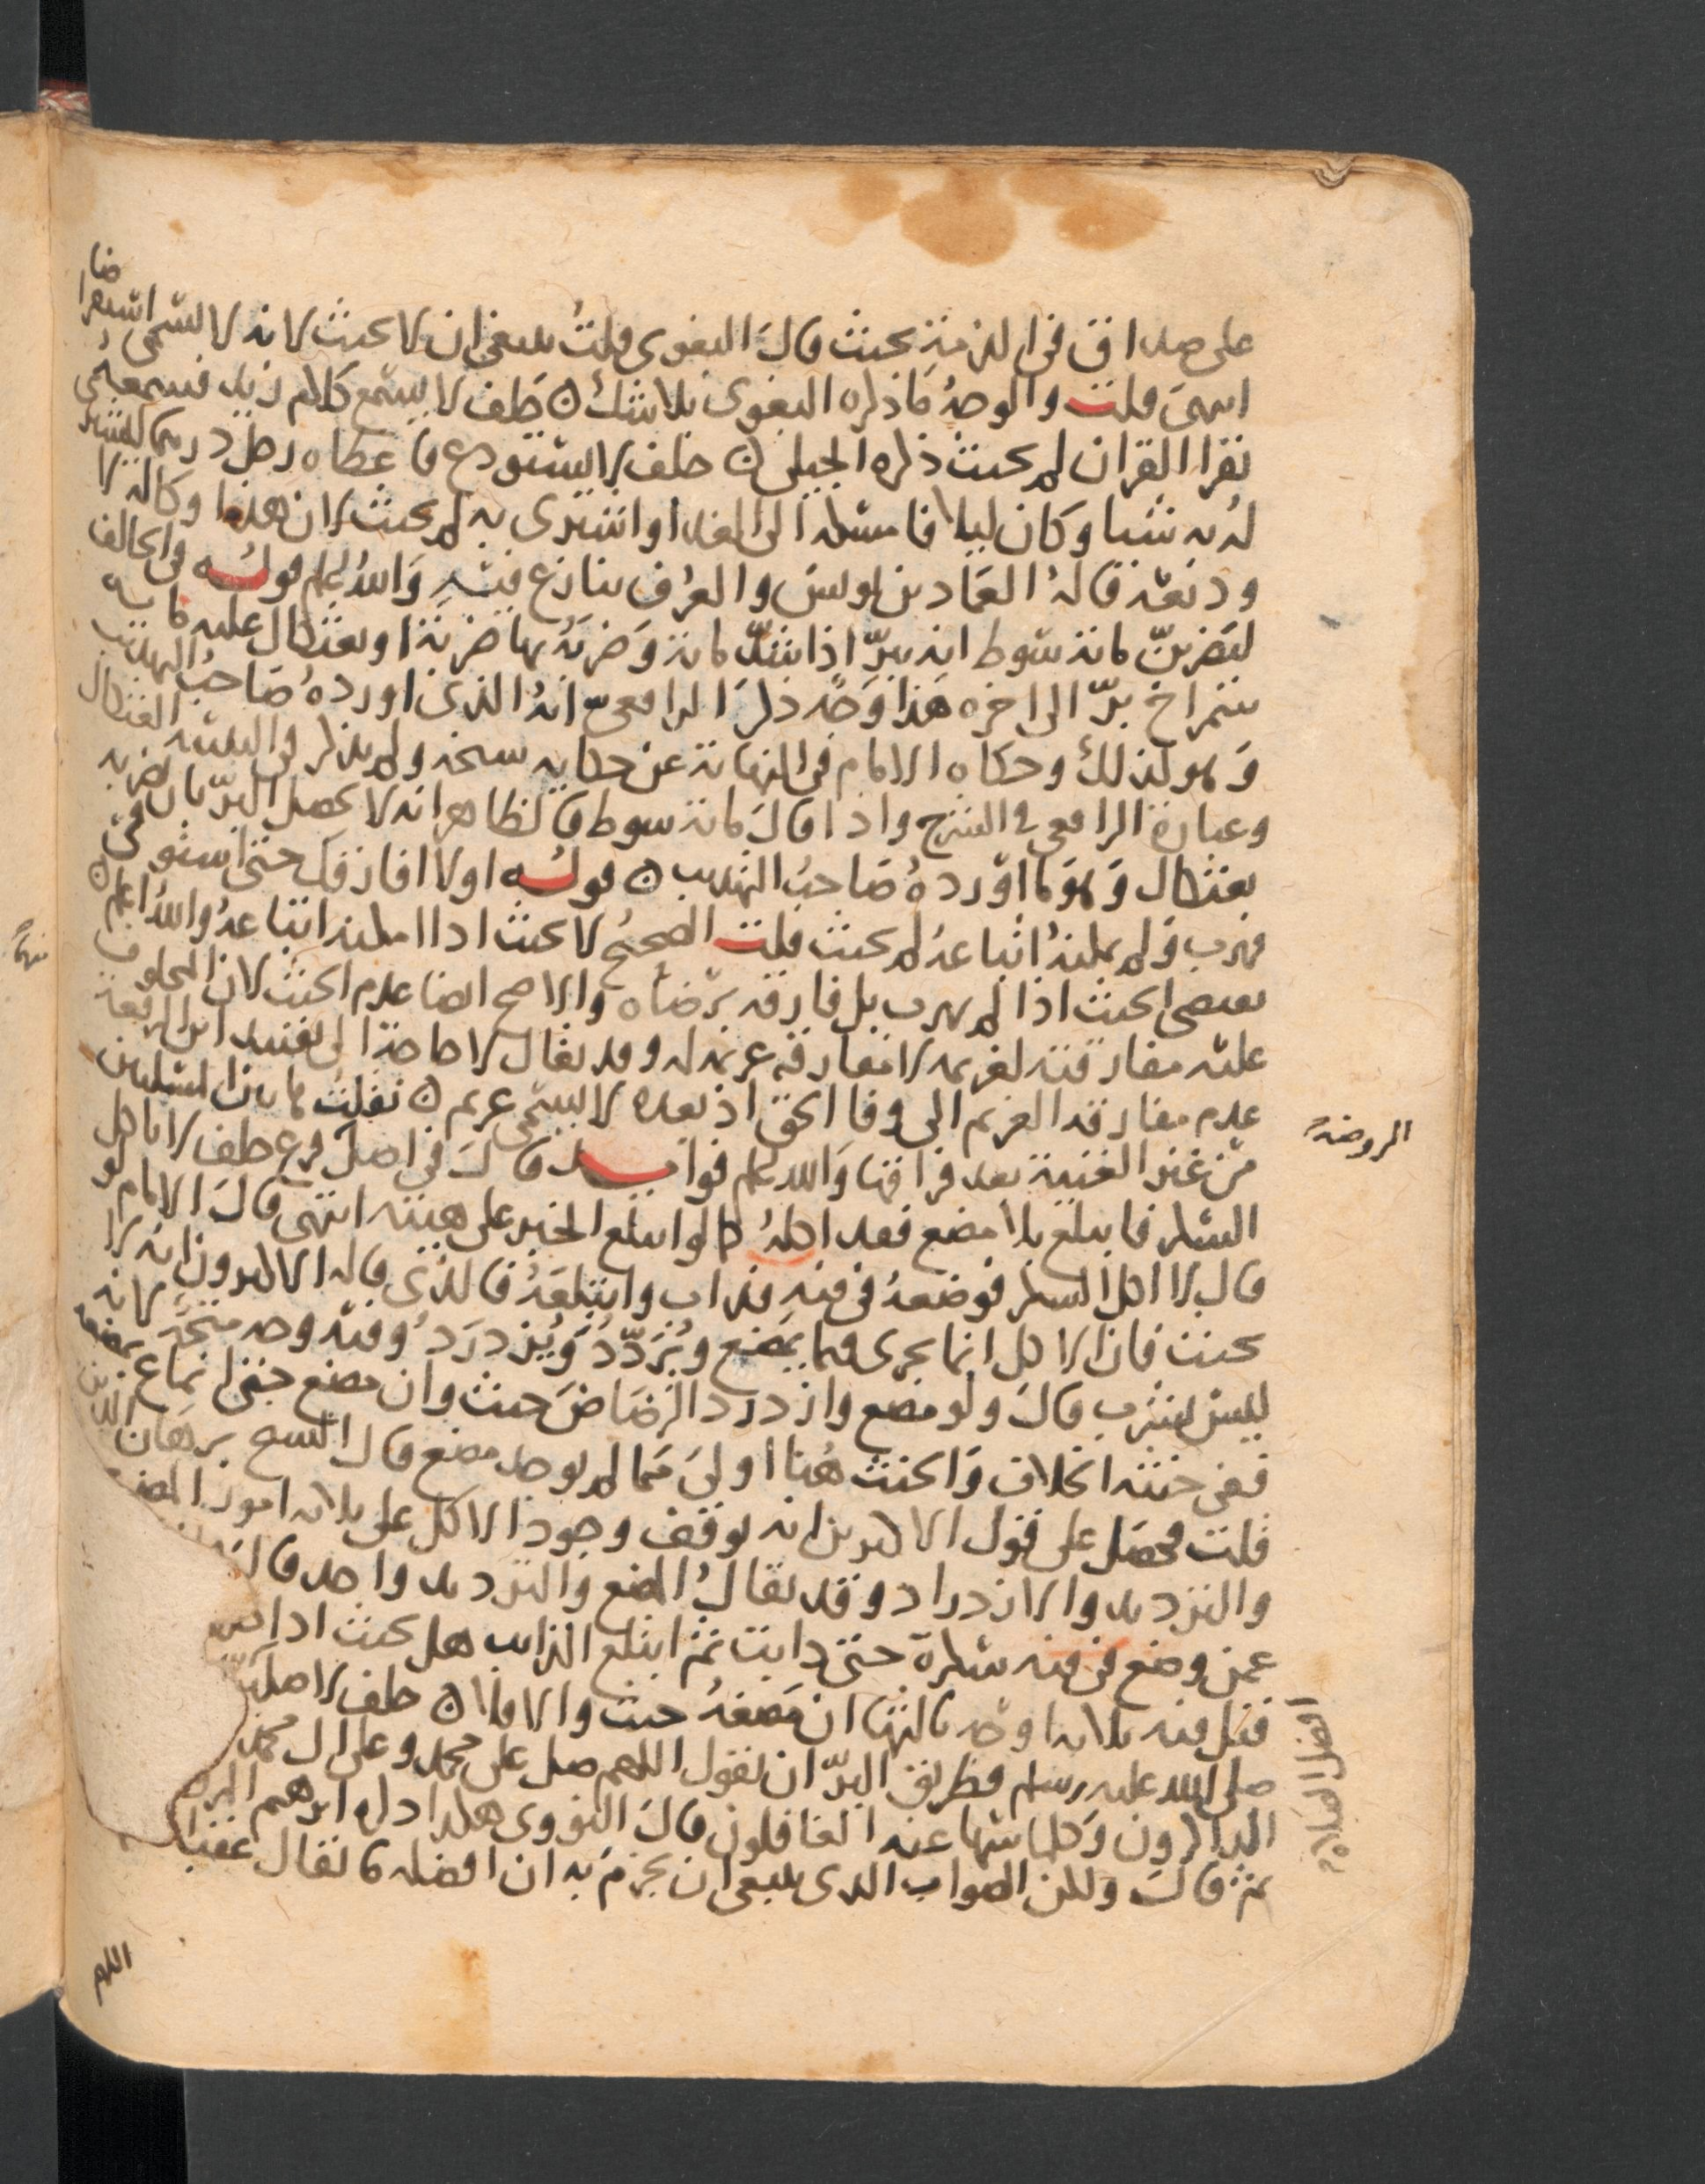 على صداق في الذمة يحنث قال البغوي قلت ينبغي ان لا يحنث لانه لا يسمى استقراضا
انتهى قلت والوجه ما ذكره البغوي بلا شك ن حلف لا يسمع كلام زيد فسمعه
يقرا القران لم يحنث ذكره الجيلي ن حلف لا يستودع فاعطاه رجل درهما ليشتري
له به شيا وكان ليلا فامسكه الى الغد او اشترى به لم يحنث لان هذا وكالة لا
وديعة قاله العماد بن يونس والعرف ينازع فيه والله اعلم قوله في الحالف
ليضربن مائة سوط انه يبر اذا شد مائة وضربه بها ضربة او بعثكال عليه مائة
شمراخ بر الى اخره هذا وجه ذكر الرافعي انه الذي اورده صاحب التهذيب
وهو كذلك وحكاه الامام في النهاية عن حكاية شيخه ولم يذكر في العثكال
وعبارة الرافعي في الشرح واذا قال مائة سوط فالظاهر انه لا يحصل البر بان يضربه
بعثكال وهو ما اورده صاحب التهذيب ن قوله اولا افارقك حتى استوفي
فهرب ولم يمكنه اتباعه لم يحنث قلت الصحيح لا يحنث اذا امكنه اتباعه والله اعلم ن
يقتضي الحنث اذا لم يهرب بل فارقه برضاه والاصح ايضا عدم الحنث لان المحلوف
عليه مفارقته لغريمه لا مفارقة غريمه له وقد يقال لا حاجة الى تقييد ابن الرفعة
عدم مفارقة الغريم الى وفا الحق اذ بعده لا يسمى غريم ن نقلت
من غير الغنية بعد فراقها والله اعلم فوايد قال في اصل الروضة فرع حلف لا ياكل
السكر فابتلع بلا مضغ فقد اكله كما لو ابتلع الخبز على هيئته انتهى قال الامام لو
قال لا اكل السكر فوضعه في فيه فذاب وابتلعه فالذي قاله الاكثرون انه لا
يحنث فان الاكل انما يجري فيما يمضغ ويردد ويزدرد وفيه وجه متجه لانه
ليس يشرب قال ولو مضغ وازدرد الرضاض حنث وان مضغ حتى انماع بمضغه
ففي حنثه الخلاف والحنث هنا اولى مما لم يوجد مضغ قال الشيخ برهان الدين
قلت محصل على قول الاكثرين انه يوقف وجود الاكل على ثلاثة امور المضغ
والترديد والازدراد وقد يقال المضغ والترديد واحد
عمن وضع في فيه سكرة حتى ذابت ثم ابتلع الذايب هل يحنث اذا
قيل فيه ثلاثة اوجه ثالثها ان مضغه حنث والا فلا ن حلف لاصلين افضل الصلاة
صلى الله عليه وسلم فطريق البر ان يقول اللهم صل على محمد وعلى ال محمد
الذاكرون وكلما سها عنه الغافلون قال النووي هكذا ذكره ابرهيم
ثم قال ولكن الصواب الذي ينبغي ان يجزم به ان افضله ما يقال
اللهم